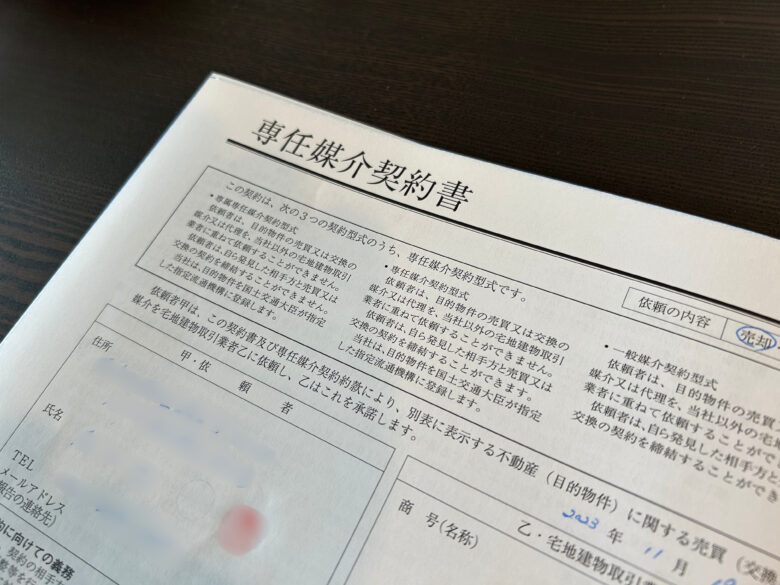 専任媒介契約書
この契約は、次の3つの契約型式のうち、専任媒介契約型式です。
依頼の内容
売却
・専属専任媒介契約型式
依頼者は、目的物件の売買又は交換の
媒介又は代理を、当社以外の宅地建物取引
業者に重ねて依頼することができません。
依頼者は、自ら発見した相手方と売買又は
交換の契約を締結することができません。
当社は、目的物件を国土交通大臣が指定
した指定流通機構に登録します。
・専任媒介契約型式
依頼者は、目的物件の売買又は交換の
媒介又は代理を、当社以外の宅地建物取引
業者に重ねて依頼することができません。
依頼者は、自ら発見した相手方と売買又は
交換の契約を締結することができます。
当社は、目的物件を国土交通大臣が指定
した指定流通機構に登録します。
・一般媒介契約型式
依頼者は、目的物件の売買
媒介又は代理を、当社以外の宅
業者に重ねて依頼することがで
依頼者は、自ら発見した相手方と
交換の契約を締結することができ
依頼者甲は、この契約書及び専任媒介契約約款により、別表に表示する不動産(目的物件)に関する売買(交
媒介を宅地建物取引業者乙に依頼し、乙はこれを承諾します。
2023年11月
甲・依頼者
住所
氏名
TEL
メールアドレス
報告の連絡先)
向けての義務
契約の相手
乙・宅地建物取引
商号(名称)